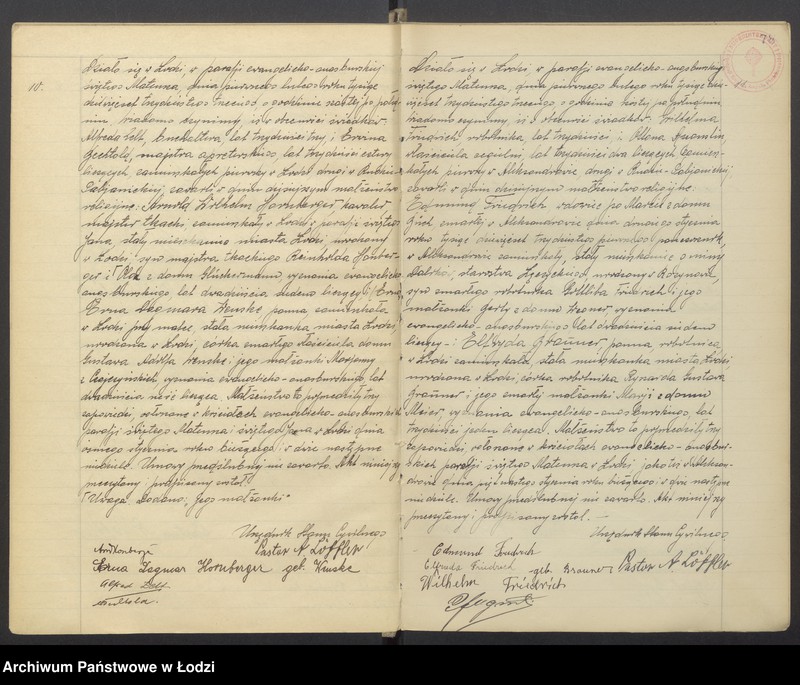 10.
Działo się w Łodzi, w parafji ewangelicko-augsburskiej
świętego Mateusza, dnia pierwszego lutego roku tysiąc
dziewięćset trzydziestego trzeciego o godzinie szóstej po połud-
niu. Wiadomo czynimy, iż w obecności świadków
Alfreda buchaltera, lat trzydzieści trzy i Erwina
Bechtold, majstra lat trzydzieści cztery
liczących, zamieszkałych pierwszy w Łodzi drugi w Rudzie
Pabjanickiej, zawarto w dniu dzisiejszym małżeństwo
religijne: Arnold Wilhelm Hornberger kawaler
majster tkacki, zamieszkały w Łodzi w parafji świętego
Jana, stały mieszkaniec miasta Łodzi, urodzony
w Łodzi, syn majstra tkackiego Reinholda Hornber-
ger i z domu wyznania ewangelicko-
augsburskiego, lat dwadzieścia siedem liczący i
Erna Dagmara Wenske, panna zamieszkała
w Łodzi przy matce, stała mieszkanka miasta Łodzi,
urodzona w Łodzi, córka zmarłego właściciela domu
Gustawa Adolfa Wenske i jego małżonki Marjanny
z wyznania ewangelicko-augsburskiego, lat
dwadzieścia sześć licząca. Małżeństwo to poprzedziły trzy
zapowiedzi, ogłoszone w kościołach ewangelicko-augsburskich
parafji świętego Mateusza i świętego Jana w Łodzi dnia
ósmego stycznia roku bieżącego i w dwie następne
niedziele. Umowy przedślubnej nie zawarto. Akt niniejszy
przeczytany i podpisany został.
Uwaga. Dodano: jego małżonki.
Urzędnik Stanu Cywilnego
Pastor A. Löffler
Erna Dagmar Hornberger geb. Wenske
Alfred
11.
Działo się w Łodzi, w parafji ewangelicko-augsburskiej
świętego Mateusza, dnia pierwszego lutego roku tysiąc dzie-
więćset trzydziestego trzeciego, o godzinie szóstej po południu
Wiadomo czynimy, iż w obecności świadków: Wilhelma
Friedrich robotnika, lat trzydzieści i Ottona
właściciela lat trzydzieści dwa liczących zamiesz-
kałych pierwszy w Aleksandrowie drugi w Rudzie-Pabjanickiej,
zawarto w dniu dzisiejszym małżeństwo religijne:
Edmund Friedrich wdowiec po z domu
zmarłej w Aleksandrowie dnia drugiego stycznia
roku tysiąc dziewięćset trzydziestego pierwszego
w Aleksandrowie zamieszkały, stały mieszkaniec gminy
starostwa urodzony w
syn zmarłego robotnika Gottliba Friedrich i jego
małżonki z domu wyznania
ewangelicko-augsburskiego lat dwadzieścia siedem
liczący i Elfryda Grauner, panna robotnica,
w Łodzi zamieszkała, stała mieszkanka miasta Łodzi,
urodzona w Łodzi, córka robotnika Rynarda Gustawa
Grauner i jego zmarłej małżonki Marji z domu
Meier, wyznania ewangelicko-augsburskiego, lat
trzydzieści jeden licząca. Małżeństwo to poprzedziły trzy
zapowiedzi ogłoszone w kościołach ewangelicko-augsbur-
skich parafji świętego Mateusza w Łodzi, jakoteż w Aleksan-
drowie dnia piętnastego stycznia roku bieżącego i w dwie następne
niedziele. Umowy przedślubnej nie zawarto. Akt niniejszy
przeczytany i podpisany został.
Urzędnik Stanu Cywilnego
Edmund Friedrich
Elfrieda Friedrich geb. Grauner Pastor A. Löffler
Wilhelm Friedrich
Archiwum Państwowe w Łodzi